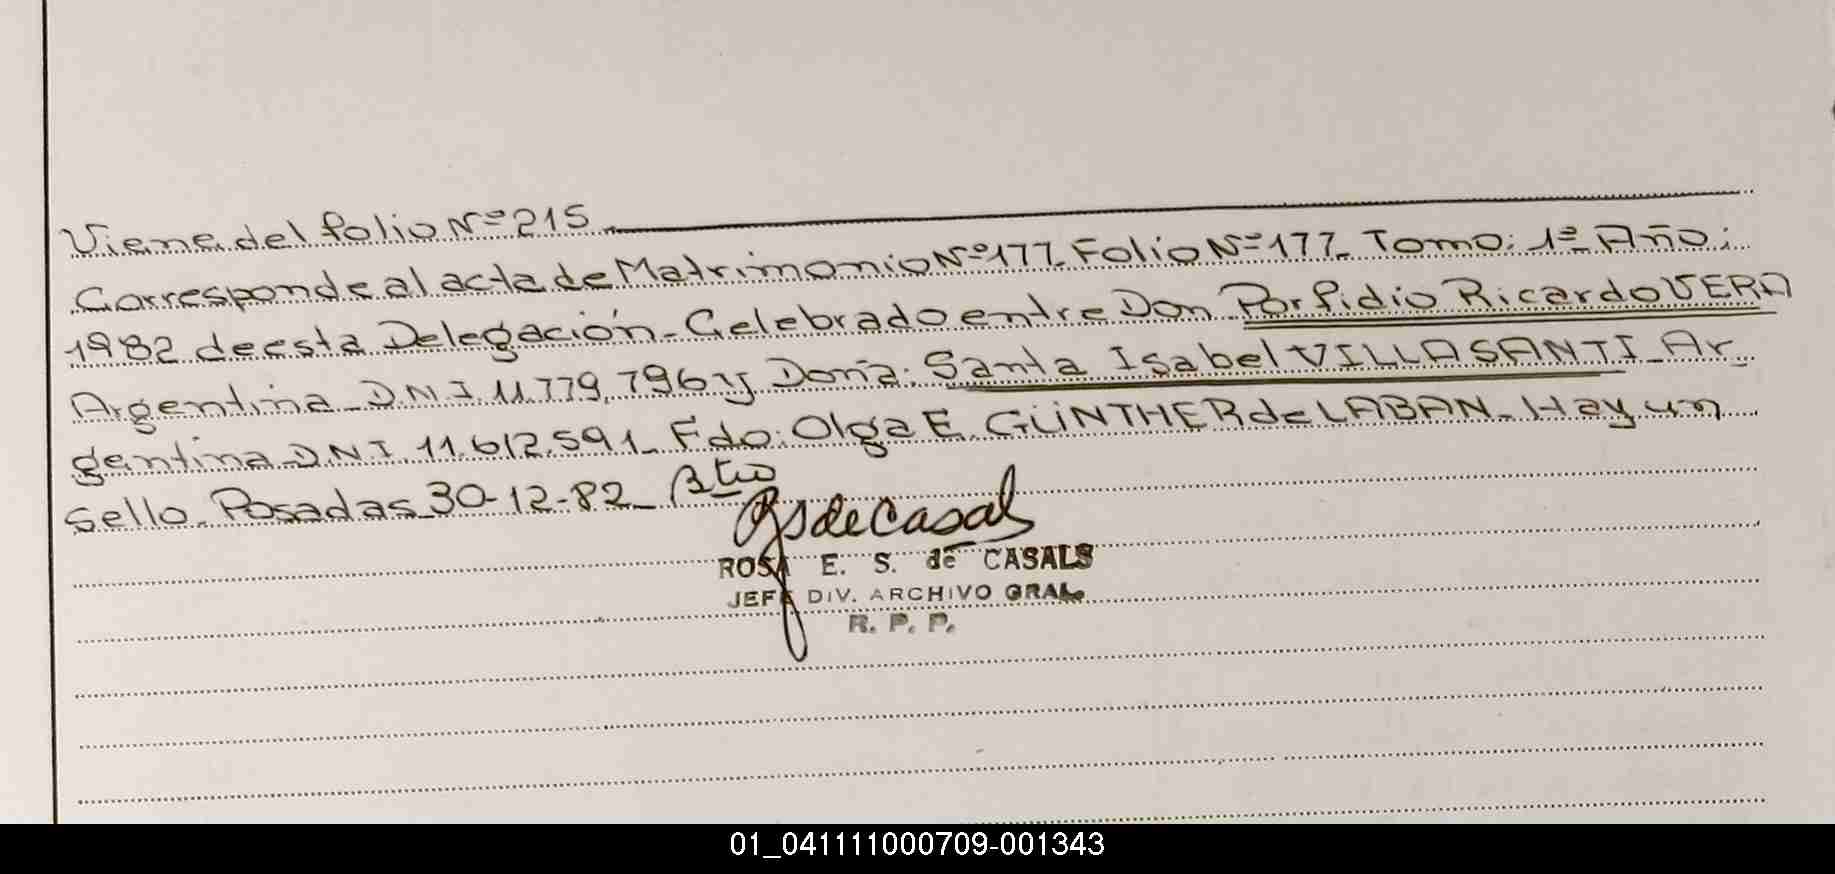 Viene del folio Nº 215
Corresponde al acta de Matrimonio Nº 177. Folio Nº 177. Tomo: 1º Año:
1982 de esta Delegación - Celebrado entre Don Porfidio Ricardo VERA
Argentina - D.N.I. 11.779.796 y Doña: Santa Isabel VILLASANTI - Ar
gentina D.N.I. 11.612.591 - Fdo: Olga E. GÜNTHER de LABAN - Hay un
sello. Posadas 30-12-82
RsdeCasals
ROSA E. S. de CASALS
JEFE DIV. ARCHIVO GRAL.
R. P. P.
01_041111000709-001343